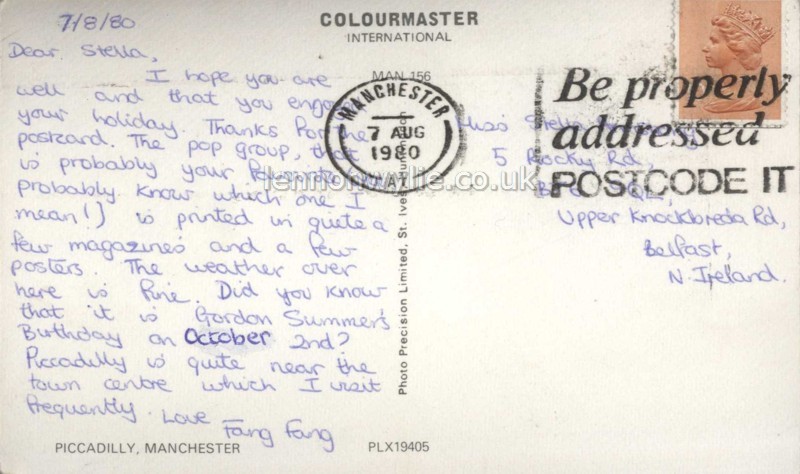 7/8/80
Dear Stella,
I hope you are
well and that you engoyed
your holiday. Thanks for the
postcard. The pop group, that
is probably your favourite (you
probably know which one I
mean!) is printed in quite a
few magazines and a few
posters. The weather over
here is fine. Did you know
that it is Gordon Summer's
Birthday on October 2nd?
Piccadilly is quite near the
town centre which I visit
frequently. Love
Fang Fang
PICCADILLY, MANCHESTER
COLOURMASTER
INTERNATIONAL
MAN 156
Photo Precision Limited, St. Ives, Huntingdon
PLX19405
MANCHESTER
7 AUG
1980
Be properly
addressed
POSTCODE IT
Miss Stella
5 Rocky Rd,
Upper Knockbreda Rd,
Belfast,
N. Ireland.
lennonwylie.co.uk